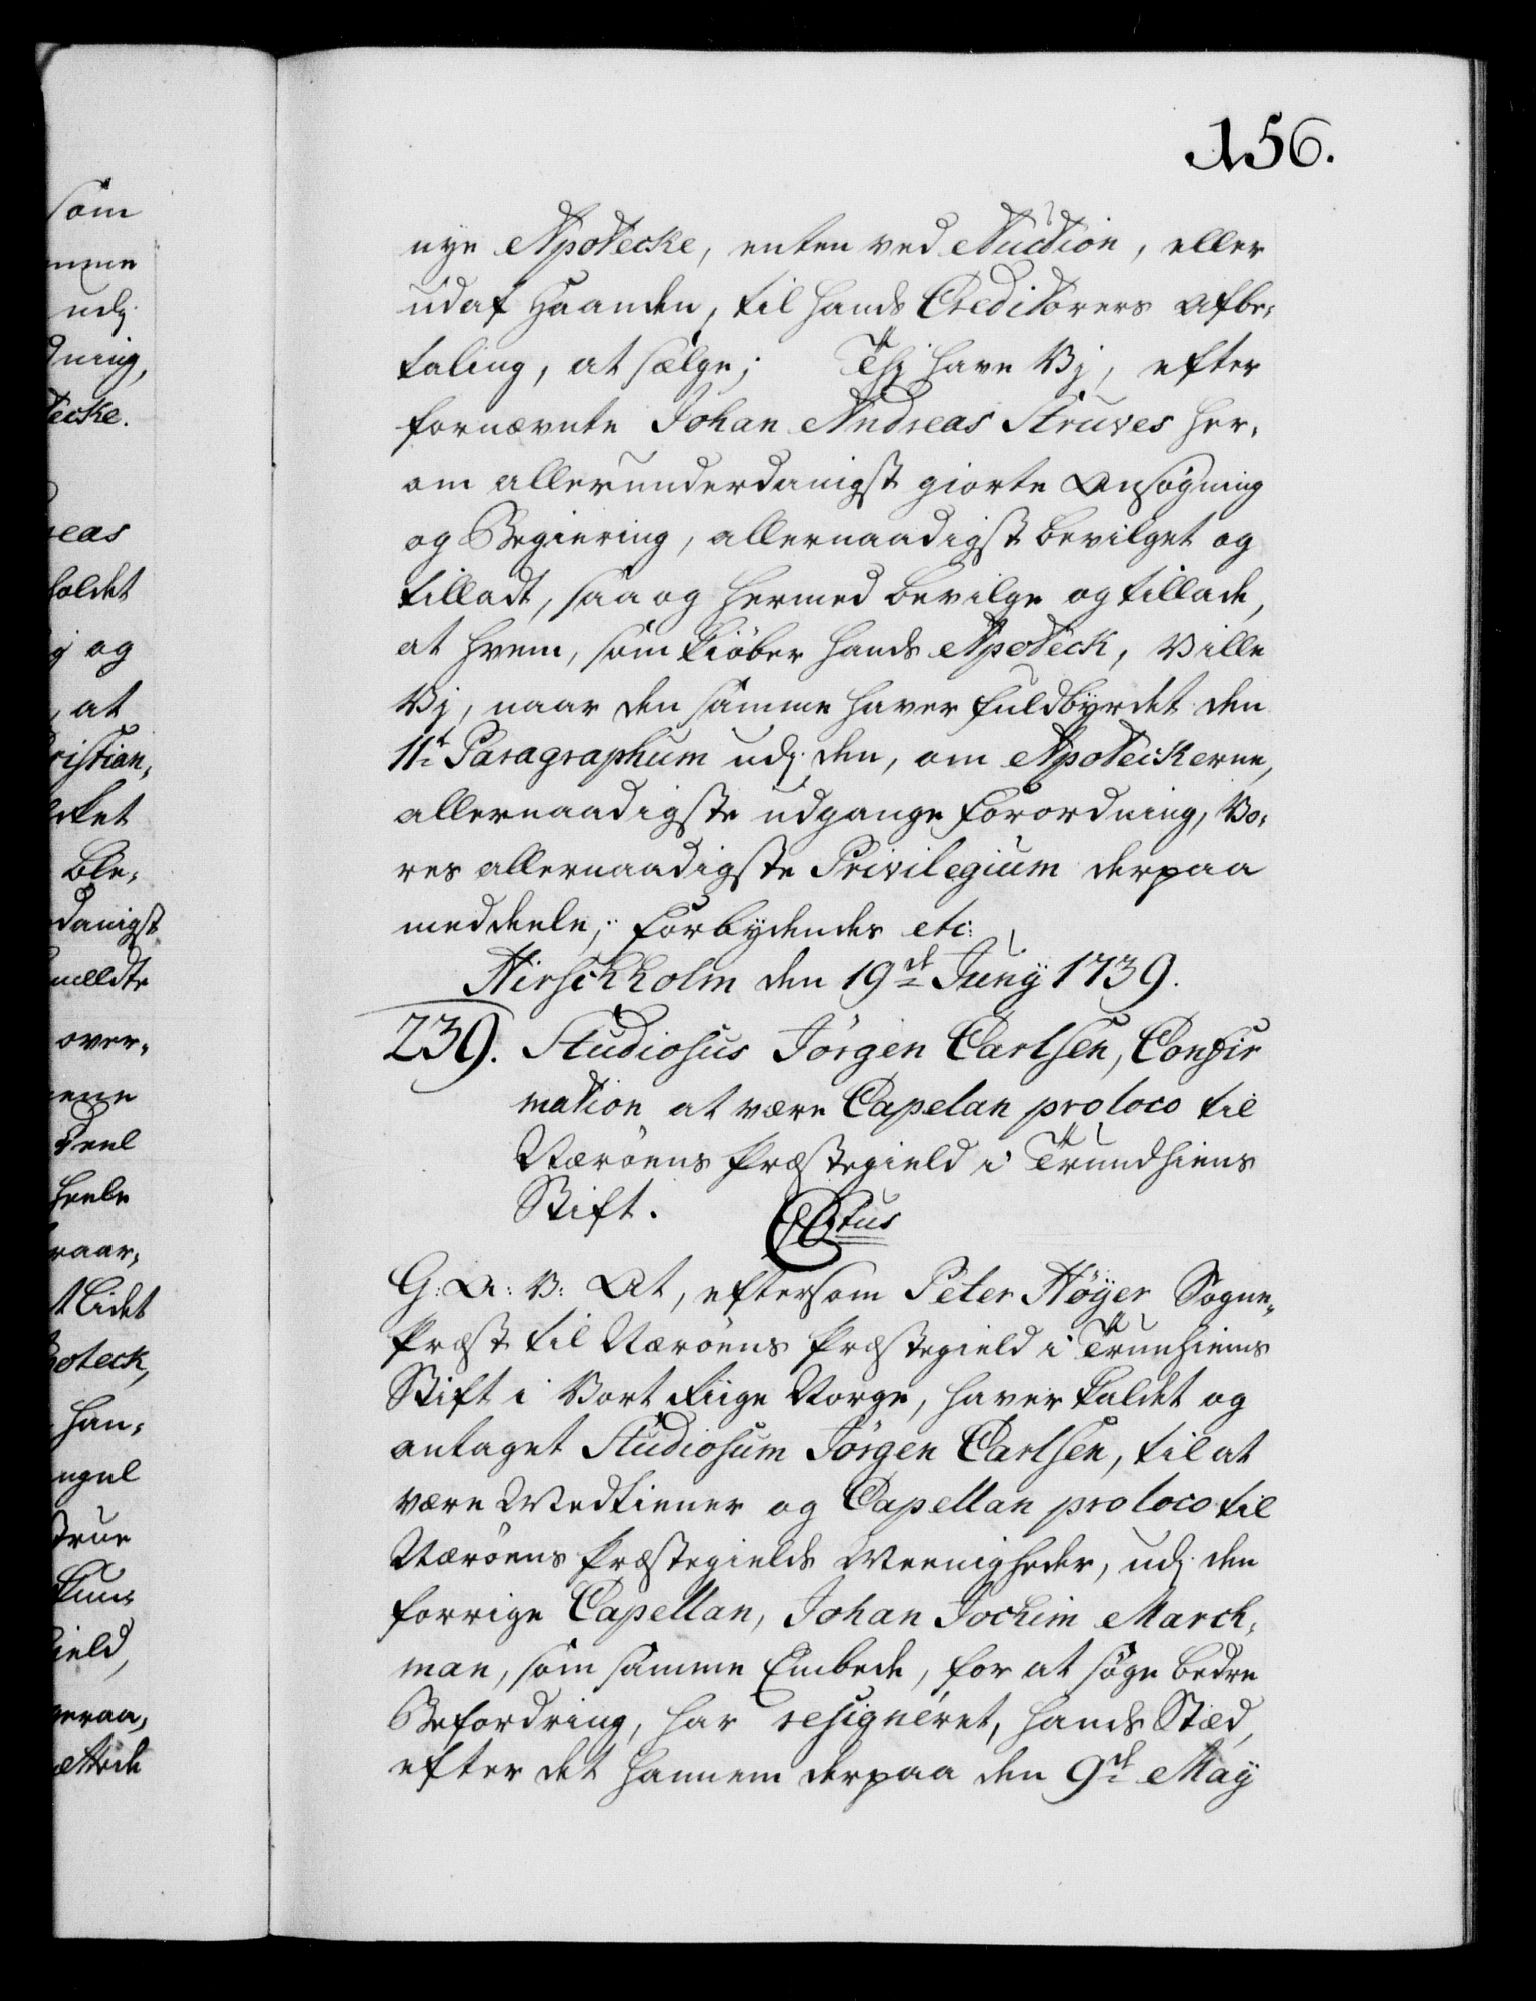 156.
som
mme
udj
dning,
tecke.
reas
holdet
j og
, at
ristian,
cket
Ble,
danigst
meldte
over,
nene
Deel
heele
waar,
t lidet
poteck,
han,
ngel
true
kun,
ield,
neraa,
ættede
nye Apotecke, enten ved Auction, eller
udaf Haanden, til hands Creditorers Afbe,
taling, at sælge; Thj have Vj, efter
fornævnte Johan Andreas Struves her,
om allerunderdanigst giorte Ansøgning
og Begiering, allernaadigst bevilget og
tilladt, saa og hermed bevilge og tillade,
at hvem, som kiøber hands Apoteck, Ville
Vj, naar den samme haver fuldbyrdet den
11te Paragraphum udj den, om Apoteckerne,
allernaadigste udgangne Forordning, Vo,
res allernaadigste Privilegium derpaa
meddeele; Forbydendes etc:
Hirschholm den 19de Junÿ 1739.
239. Studiosus Jørgen Carlsen, Confir
mation at være Capelan pro loco til
Nærøens Præstegield i Trundhiems
Stift. CBtus
G: A: V: At, eftersom Peter Høÿer Sogne,
Præst til Nærøens Præstegield i Trunhiems
Stift i Vort Riige Norge, haver kaldet og
antaget Studiosum Jørgen Carlsen, til at
være Medtiener og Capellan pro loco til
Nærøens Præstegields Meenigheder, udj den
forrige Capellan, Johan Jochim March,
man, som samme Embede, for at søge bedre
Befordring, har resigneret, hands Stæd,
efter det hannem derpaa den 9de Maÿ